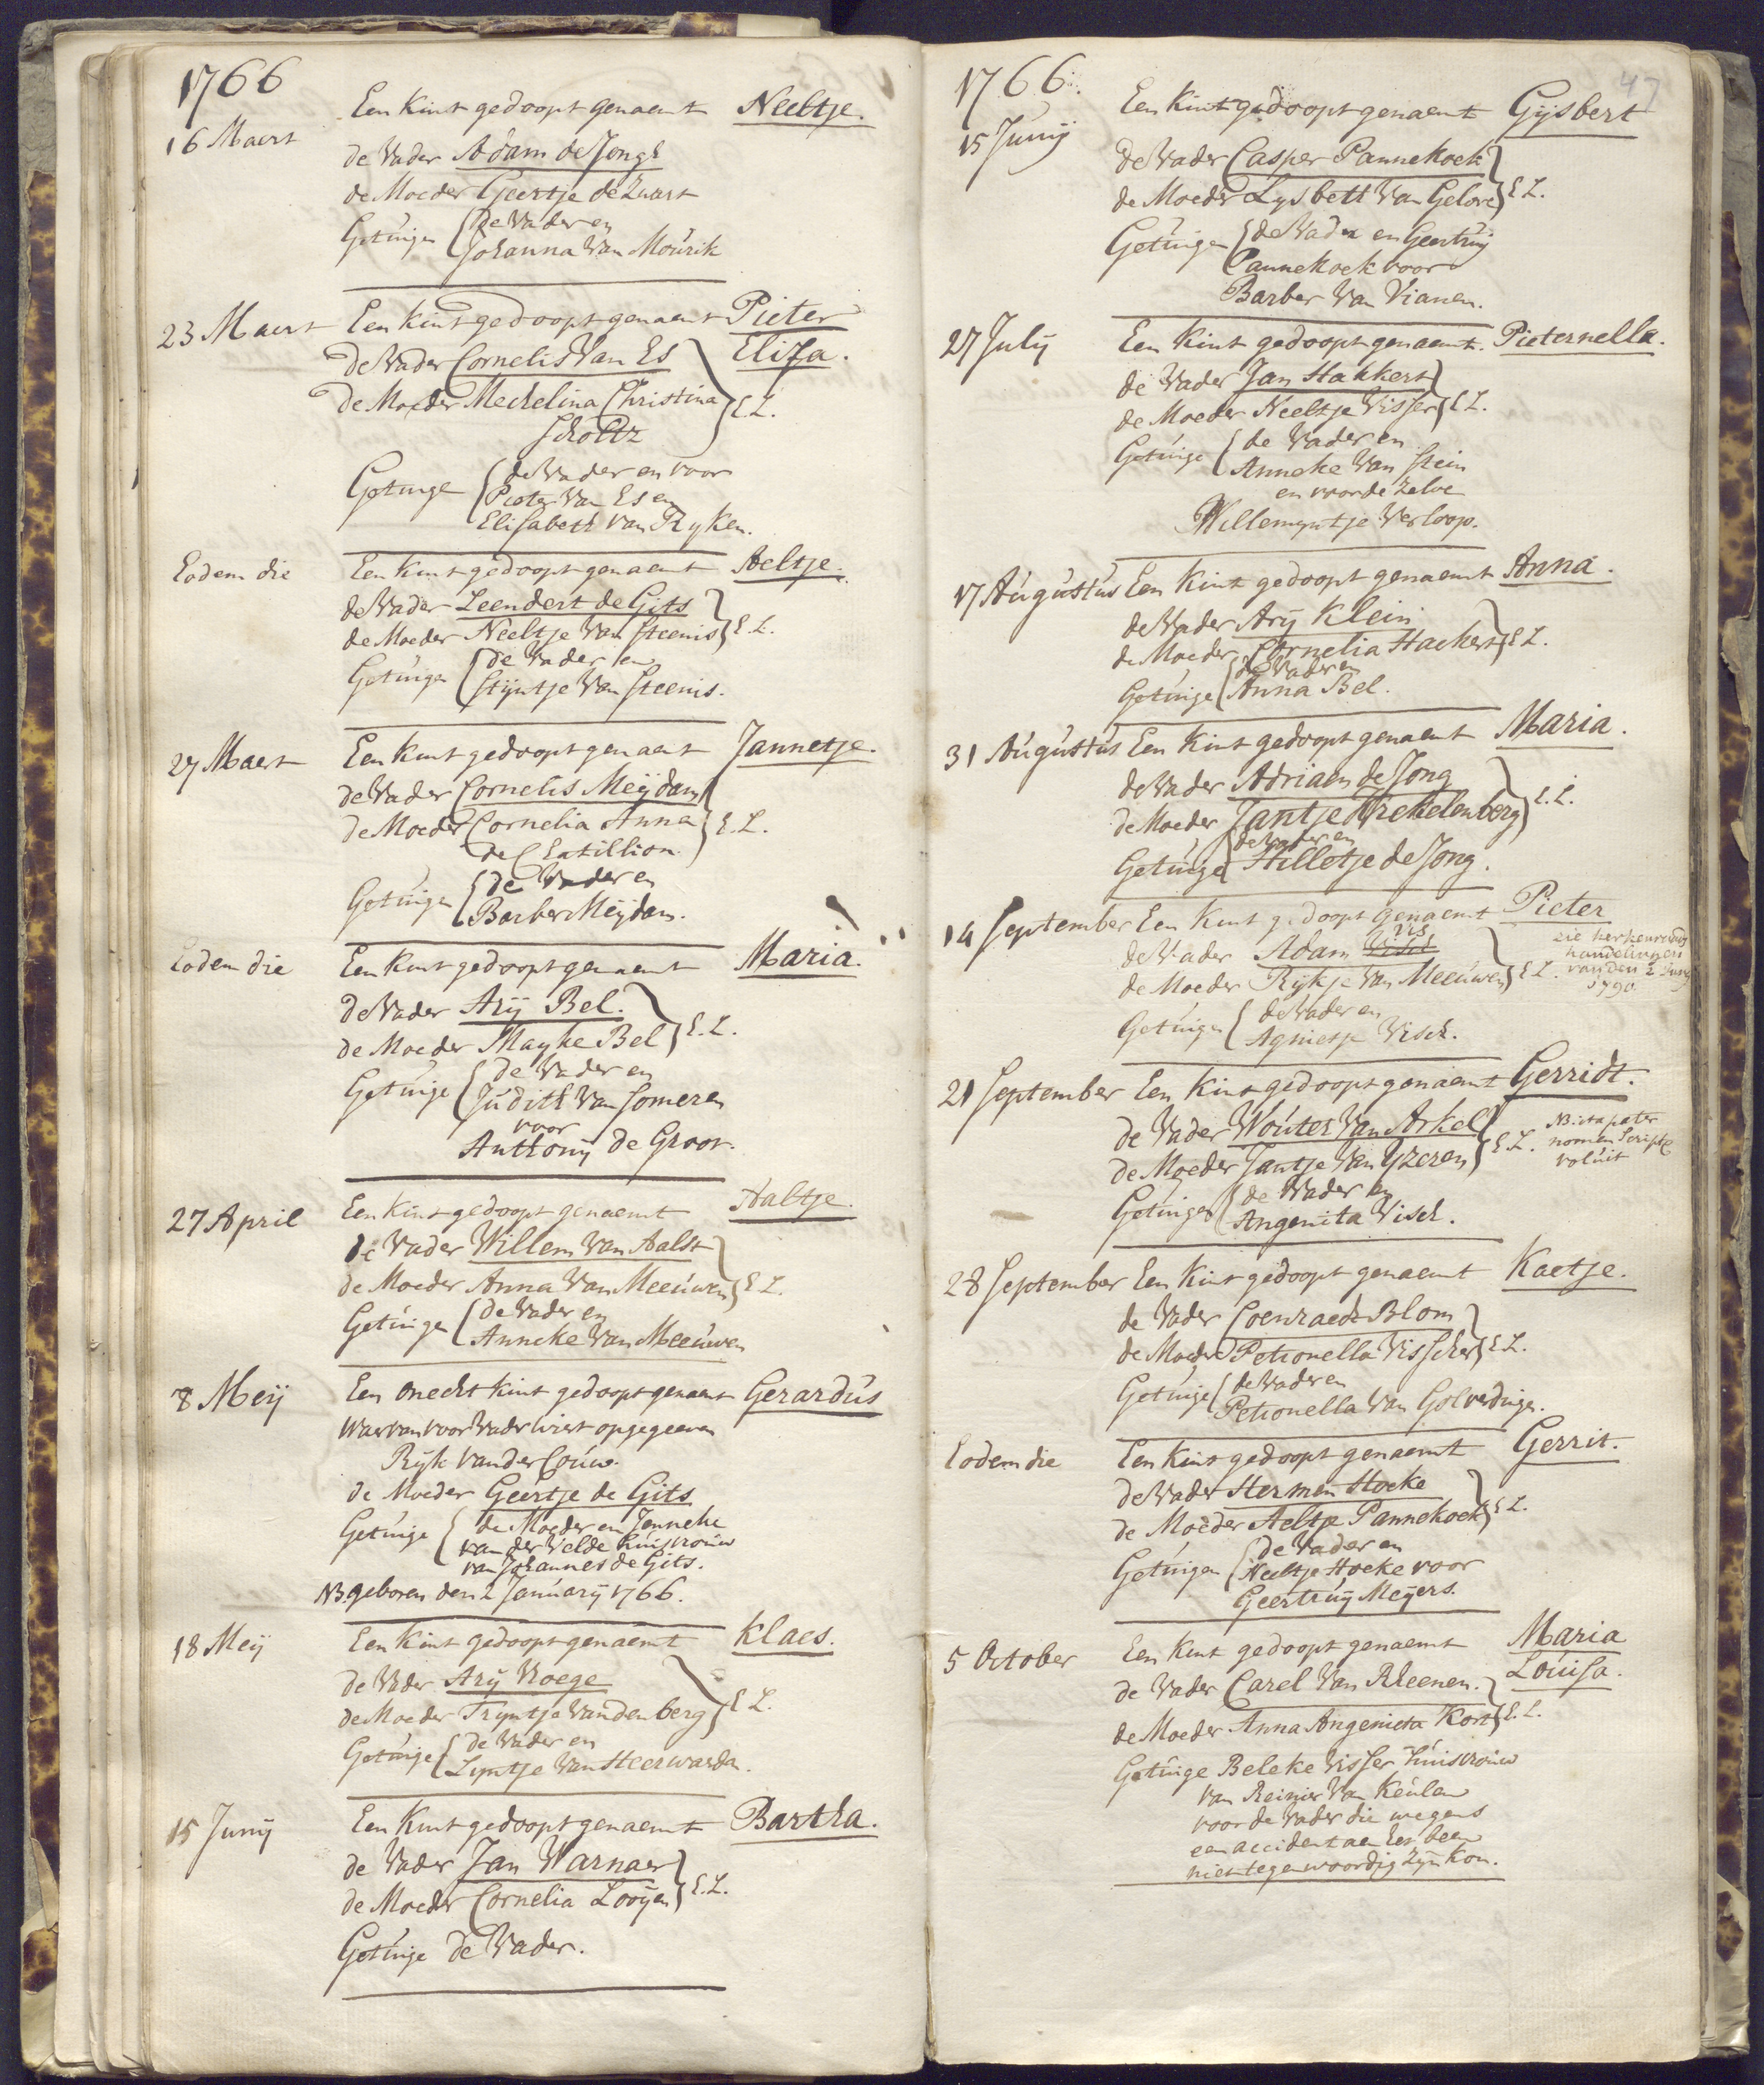 1766
16 Maert Een Kint gedoopt genaemt Neeltje.
de Vader Adam de Jongh
de Moeder Geertje de Zwart
Getuigen de Vader en
Johanna Van Mourik
23 Maert Een Kint gedoopt genaemt Pieter
de Vader Cornelis Van Es Eliza.
de Moeder Mechelina Christina E.L.
Scholtz
Getuige de Vader en voor
Pieter Van Es en
Elisabeth Van Ryken.
Eodem die Een Kint gedoopt genaemt Aeltje.
de Vader Leendert de Gits
de Moeder Neeltje Van Steenis E.L.
Getuigen de Vader en
Stijntje Van Steenis.
27 Maert Een Kint gedoopt genaemt Jannetje.
de Vader Cornelis Meijdam
de Moeder Cornelia Anna E.L.
de Chatillion
Getuigen de Vader en
Barber Meijdam.
Eodem die Een Kint gedoopt genaemt Maria.
de Vader Arij Bel.
de Moeder Mayke Bel E.L.
Getuige de Vader en
Judith Van Someren
voor
Anthonij de Groot.
27 April Een Kint gedoopt genaemt Aaltje.
de Vader Willem Van Aalst
de Moeder Anna Van Meeuwen E L.
Getuigen de Vader en
Anneke Van Meeuwen
8 Meij Een onecht kint gedoopt genaemt Gerardus
Waervan voor Vader wiert opgegeeven
Rijk van der Couw.
de Moeder Geertje de Gits
Getuige de Moeder en Jenneke
van der Velde huisvrouw
van Johannes de Gits.
NB. geboren den 2 Januarij 1766.
18 Meij Een Kint gedoopt genaemt Klaes.
de Vader Arij Vroege
de Moeder Tryntje Van den berg E L.
Getuige de Vader en
Lyntje Van Heerwarde.
15 Junij Een Kint gedoopt genaemt Bartha.
de Vader Jan Warnaer
de Moeder Cornelia Looijen E.L.
Getuige de Vader.
47
1766.
15 Junij Een Kint gedoopt genaemt Gijsbert
de Vader Casper Pannekoek
de Moeder Lysbeth Van Gelove E L.
Getuigen de Vader en Geertruij
Pannekoek voor
Barber Van Vianen.
27 Julij Een Kint gedoopt genaemt. Pieternella.
de Vader Jan Hakkert
de Moeder Neeltje Visser E L.
Getuige de Vader en
Anneke Van Stein
en voor de zelve
Willemyntje Verloop.
17 Augustus Een Kint gedoopt genaemt Anna.
de Vader Arij Klein
de Moeder Cornelia Hackert E L.
de Vader en
Getuige Anna Bel.
31 Augustus Een Kint gedoopt genaemt Maria.
de Vader Adriaen de Jong
de Moeder Jantje Krekelenberg E.L.
de Vader en
Getuige Hilletje de Jong.
14 September Een Kint gedoopt genaemt Pieter
vis
de Vader Adam Visch zie kerkenraads
handelingen
de Moeder Rijkje Van Meeuwen E L. van den 2 Junij
1790
Getuigen de Vader en
Agnietje Visch.
21 September Een Kint gedoopt genaemt Gerridt.
de Vader Wouter Van Arkel NB. ita pater
nomen Scripte
de Moeder Jantje Van Yzeren E L. voluit
Getuigen de Vader en
Angenita Visch.
28 September Een Kint gedoopt genaemt Kaetje.
de Vader Coenraedt Blom
de Moeder Petronella Visscher E L.
Getuige de Vader en
Petronella Van Golverdinge.
Eodem die Een Kint gedoopt genaemt Gerrit.
de Vader Hermen Hoeke
de Moeder Aeltje Pannekoek E L.
Getuigen de Vader en
Neeltje Hoeke voor
Geertruij Meijers.
5 October Een Kint gedoopt genaemt Maria
de Vader Carel Van Rheenen. Louisa.
de Moeder Anna Angenieta Kort E.L.
Getuige Beleke Visser huisvrouw
van Reinier Van Keulen
voor de Vader die wegens
een accident aen het been
niet tegenwoordig zijn kon.